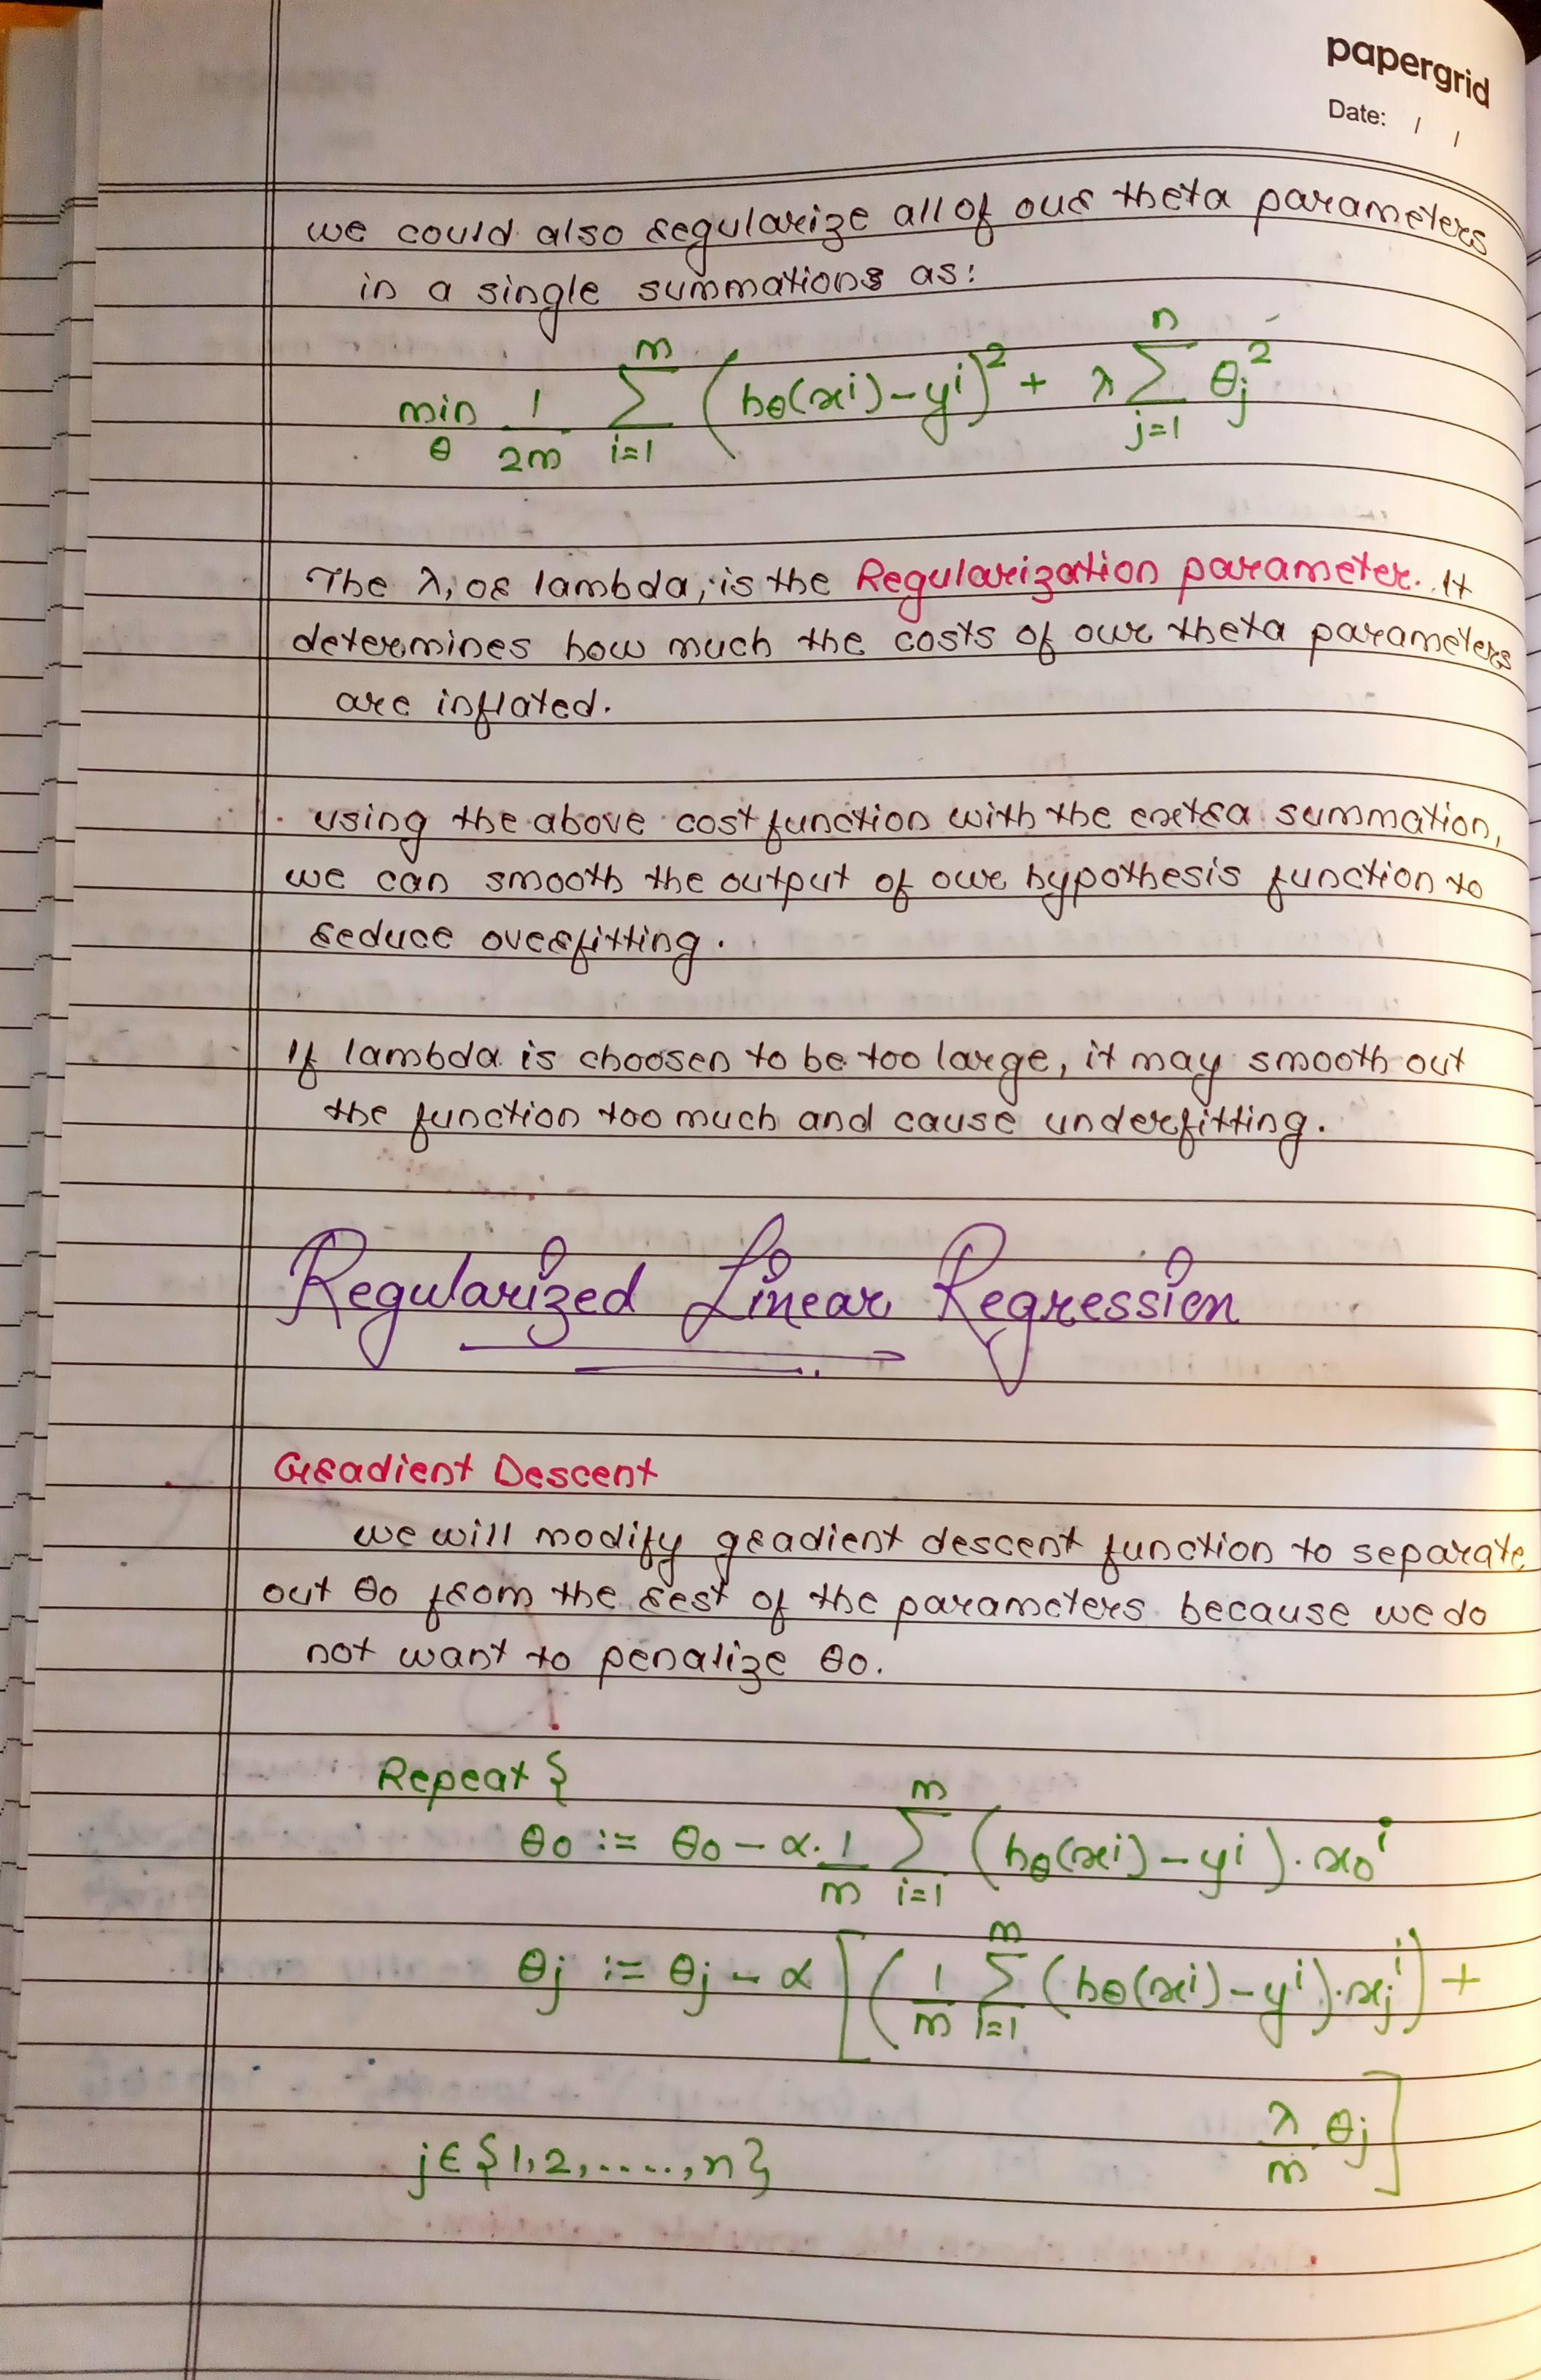 papergrid
Date: / /
we could also regularize all of our theta parameters
in a single summations as:
min_θ 1/2m Σ_{i=1}^{m} (hθ(xⁱ) - yⁱ)² + λ Σ_{j=1}^{n} θj²
The λ, or lambda, is the Regularization parameter. It
determines how much the costs of our theta parameters
are inflated.
using the above cost function with the extra summation,
we can smooth the output of our hypothesis function to
reduce overfitting.
If lambda is choosen to be too large, it may smooth out
the function too much and cause underfitting.
Regularized Linear Regression
Gradient Descent
we will modify gradient descent function to separate
out θ0 from the rest of the parameters because we do
not want to penalize θ0.
Repeat {
θ0 := θ0 - α · 1/m Σ_{i=1}^{m} (hθ(xⁱ) - yⁱ) · x0ⁱ
θj := θj - α [ ( 1/m Σ_{i=1}^{m} (hθ(xⁱ) - yⁱ) · xjⁱ ) +
λ/m θj ]
j ∈ {1, 2, ....., n}